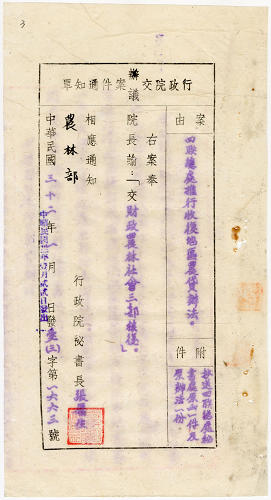 3
行政院交辦議案件通知單
案由
四聯總處推行收復地區農貸辦法。
附件
抄送四聯總處秘書處原函一件及原辦法一份。
右案奉
院長諭：「交財政農林社會三部核復。」
相應通知
農林部
行政院秘書長張
中華民國三十二年 月 日發
字第一六六三號